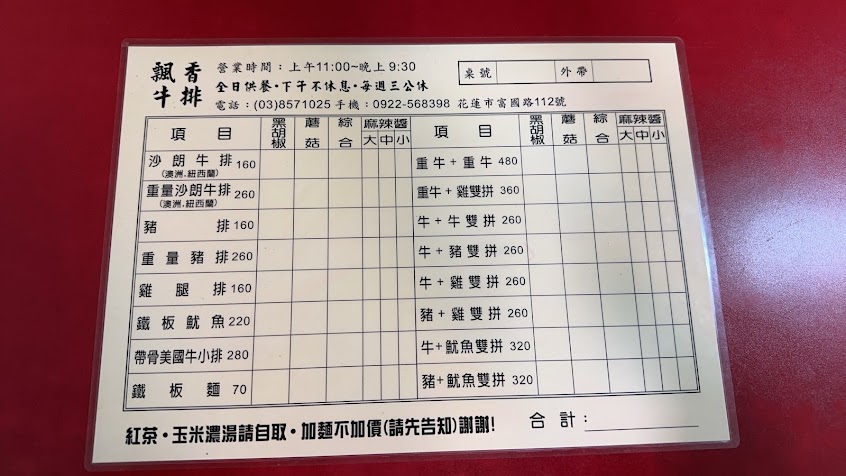 飄香牛排
營業時間：上午11:00~晚上9:30
全日供餐・下午不休息・每週三公休
電話：(03)8571025 手機：0922-568398 花蓮市富國路112號
桌號 外帶
項目 黑胡椒 蘑菇 綜合 麻辣醬 大 中 小
沙朗牛排 160
(澳洲.紐西蘭)
重量沙朗牛排 260
(澳洲.紐西蘭)
豬排 160
重量豬排 260
雞腿排 160
鐵板魷魚 220
帶骨美國牛小排 280
鐵板麵 70
項目 黑胡椒 蘑菇 綜合 麻辣醬 大 中 小
重牛+重牛 480
重牛+雞雙拼 360
牛+牛雙拼 260
牛+豬雙拼 260
牛+雞雙拼 260
豬+雞雙拼 260
牛+魷魚雙拼 320
豬+魷魚雙拼 320
紅茶・玉米濃湯請自取・加麵不加價(請先告知)謝謝!
合計：